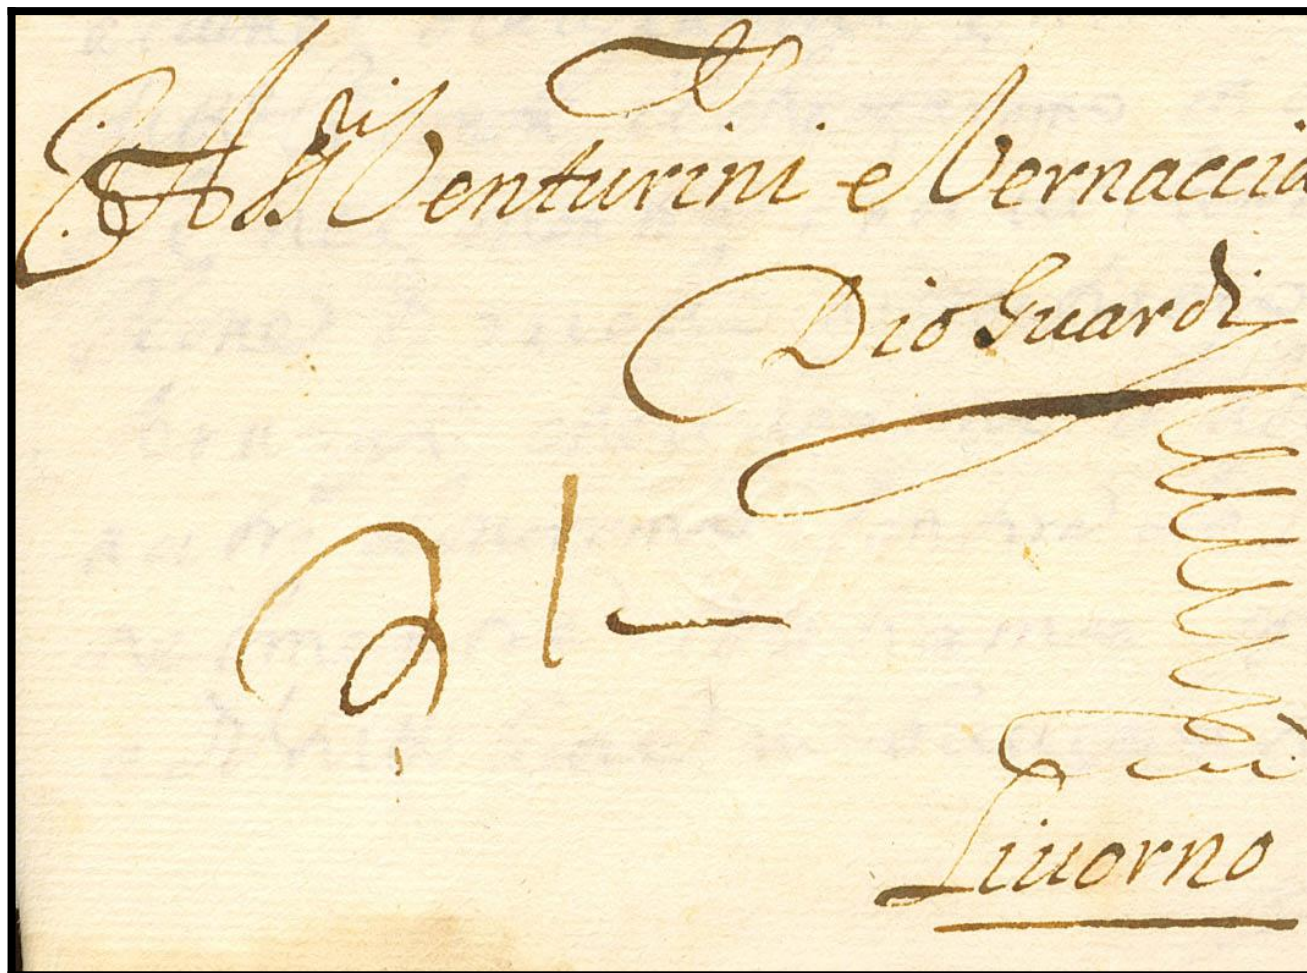 A SS.ri Venturini e Vernaccia
Dio Guardi
Liuorno